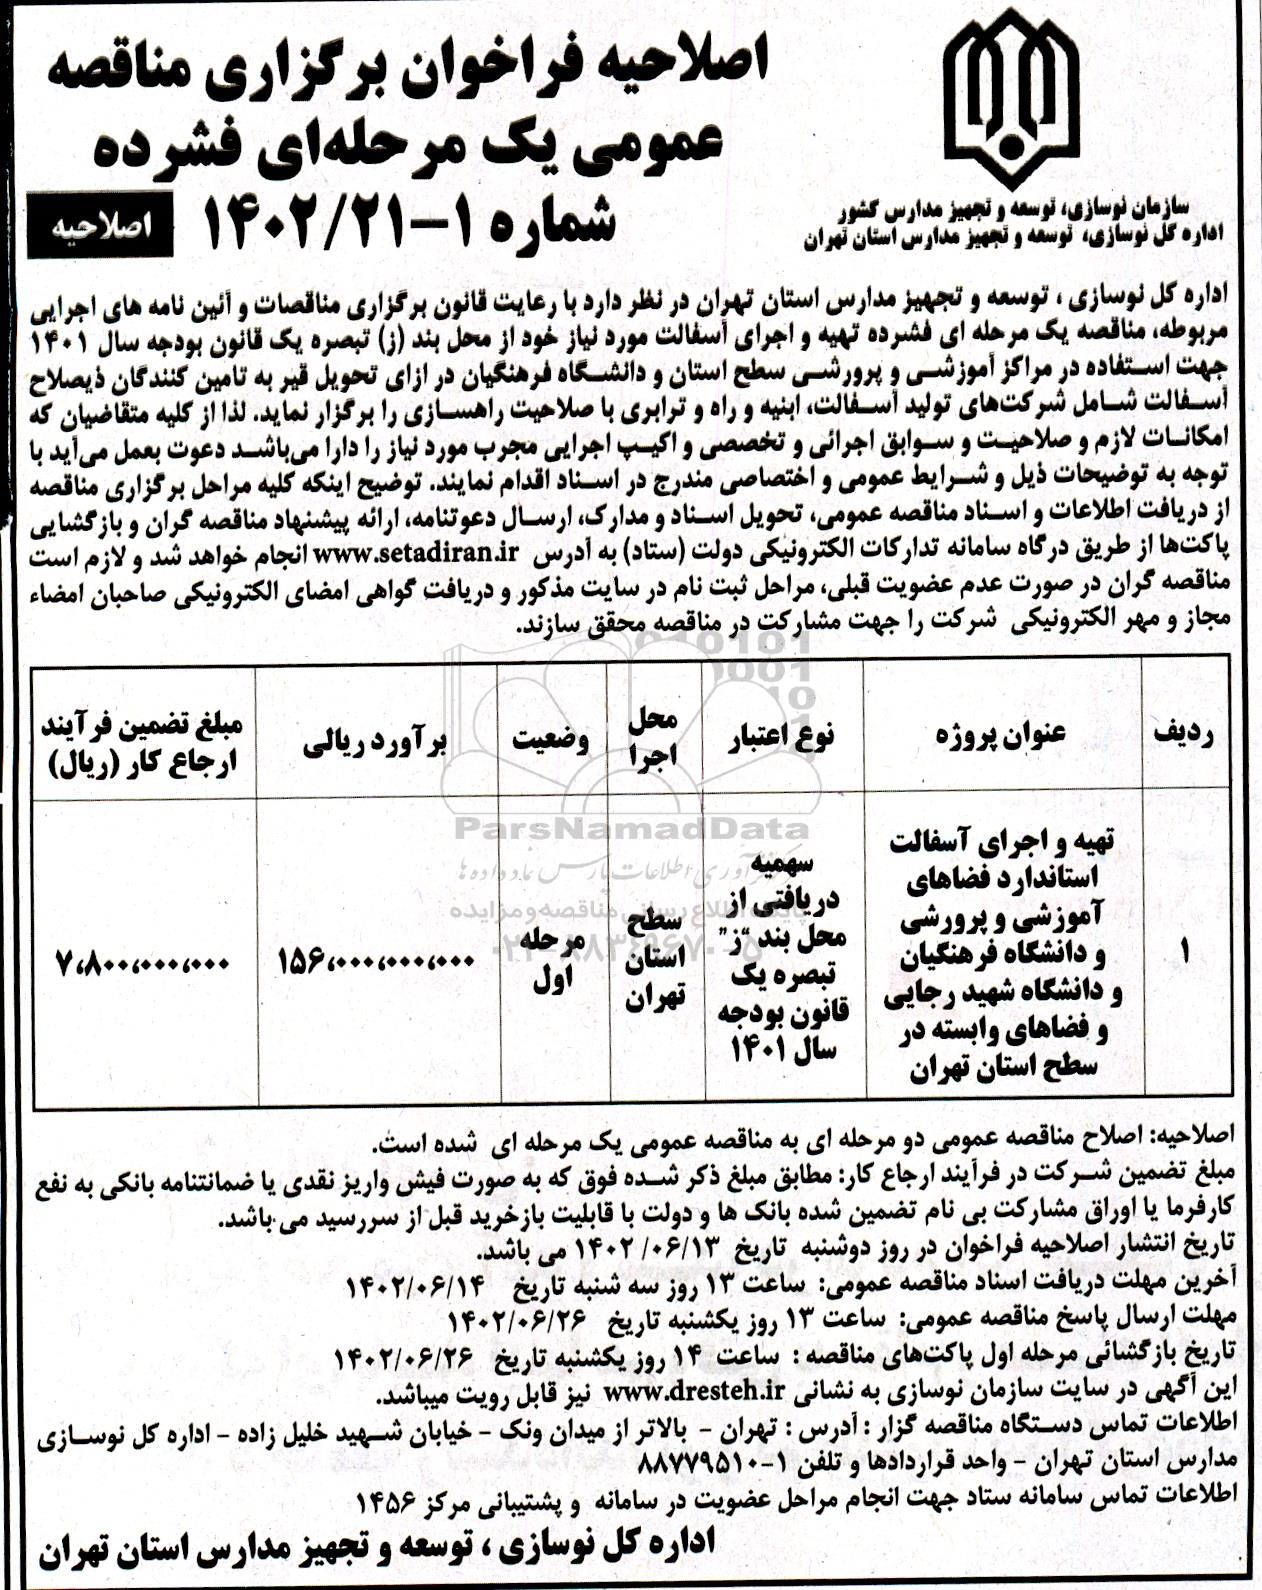 اصلاحیه فراخوان برگزاری مناقصه
عمومی یک مرحله‌ای فشرده
شماره ۱-۱۴۰۲/۲۱
اصلاحیه
سازمان نوسازی، توسعه و تجهیز مدارس کشور
اداره کل نوسازی، توسعه و تجهیز مدارس استان تهران
اداره کل نوسازی ، توسعه و تجهیز مدارس استان تهران در نظر دارد با رعایت قانون برگزاری مناقصات و آئین نامه های اجرایی
مربوطه، مناقصه یک مرحله ای فشرده تهیه و اجرای آسفالت مورد نیاز خود از محل بند (ز) تبصره یک قانون بودجه سال ۱۴۰۱
جهت استفاده در مراکز آموزشی و پرورشی سطح استان و دانشگاه فرهنگیان در ازای تحویل قیر به تامین کنندگان ذیصلاح
آسفالت شامل شرکت‌های تولید آسفالت، ابنیه و راه و ترابری با صلاحیت راهسازی را برگزار نماید. لذا از کلیه متقاضیان که
امکانات لازم و صلاحیت و سوابق اجرائی و تخصصی و اکیپ اجرایی مجرب مورد نیاز را دارا می‌باشد دعوت بعمل می‌آید با
توجه به توضیحات ذیل و شرایط عمومی و اختصاصی مندرج در اسناد اقدام نمایند. توضیح اینکه کلیه مراحل برگزاری مناقصه
از دریافت اطلاعات و اسناد مناقصه عمومی، تحویل اسناد و مدارک، ارسال دعوتنامه، ارائه پیشنهاد مناقصه گران و بازگشایی
پاکت‌ها از طریق درگاه سامانه تدارکات الکترونیکی دولت (ستاد) به آدرس www.setadiran.ir انجام خواهد شد و لازم است
مناقصه گران در صورت عدم عضویت قبلی، مراحل ثبت نام در سایت مذکور و دریافت گواهی امضای الکترونیکی صاحبان امضاء
مجاز و مهر الکترونیکی شرکت را جهت مشارکت در مناقصه محقق سازند.
ردیف
عنوان پروژه
نوع اعتبار
محل
اجرا
وضعیت
برآورد ریالی
مبلغ تضمین فرآیند
ارجاع کار (ریال)
۱
تهیه و اجرای آسفالت
استاندارد فضاهای
آموزشی و پرورشی
و دانشگاه فرهنگیان
و دانشگاه شهید رجایی
و فضاهای وابسته در
سطح استان تهران
سهمیه
دریافتی از
محل بند "ز"
تبصره یک
قانون بودجه
سال ۱۴۰۱
سطح
استان
تهران
مرحله
اول
۱۵۶،۰۰۰،۰۰۰،۰۰۰
۷،۸۰۰،۰۰۰،۰۰۰
ParsNamadData
پایگاه اطلاع رسانی مناقصه و مزایده
۰۲۱-۸۸۳۴۹۶۷۰-۵
اصلاحیه: اصلاح مناقصه عمومی دو مرحله ای به مناقصه عمومی یک مرحله ای شده است.
مبلغ تضمین شرکت در فرآیند ارجاع کار: مطابق مبلغ ذکر شده فوق که به صورت فیش واریز نقدی یا ضمانتنامه بانکی به نفع
کارفرما یا اوراق مشارکت بی نام تضمین شده بانک ها و دولت با قابلیت بازخرید قبل از سررسید می باشد.
تاریخ انتشار اصلاحیه فراخوان در روز دوشنبه تاریخ ۱۴۰۲/۰۶/۱۳ می باشد.
آخرین مهلت دریافت اسناد مناقصه عمومی: ساعت ۱۳ روز سه شنبه تاریخ ۱۴۰۲/۰۶/۱۴
مهلت ارسال پاسخ مناقصه عمومی: ساعت ۱۳ روز یکشنبه تاریخ ۱۴۰۲/۰۶/۲۶
تاریخ بازگشائی مرحله اول پاکت‌های مناقصه : ساعت ۱۴ روز یکشنبه تاریخ ۱۴۰۲/۰۶/۲۶
این آگهی در سایت سازمان نوسازی به نشانی www.dresteh.ir نیز قابل رویت میباشد.
اطلاعات تماس دستگاه مناقصه گزار : آدرس : تهران - بالاتر از میدان ونک - خیابان شهید خلیل زاده - اداره کل نوسازی
مدارس استان تهران - واحد قراردادها و تلفن ۱-۸۸۷۷۹۵۱۰
اطلاعات تماس سامانه ستاد جهت انجام مراحل عضویت در سامانه و پشتیبانی مرکز ۱۴۵۶
اداره کل نوسازی ، توسعه و تجهیز مدارس استان تهران